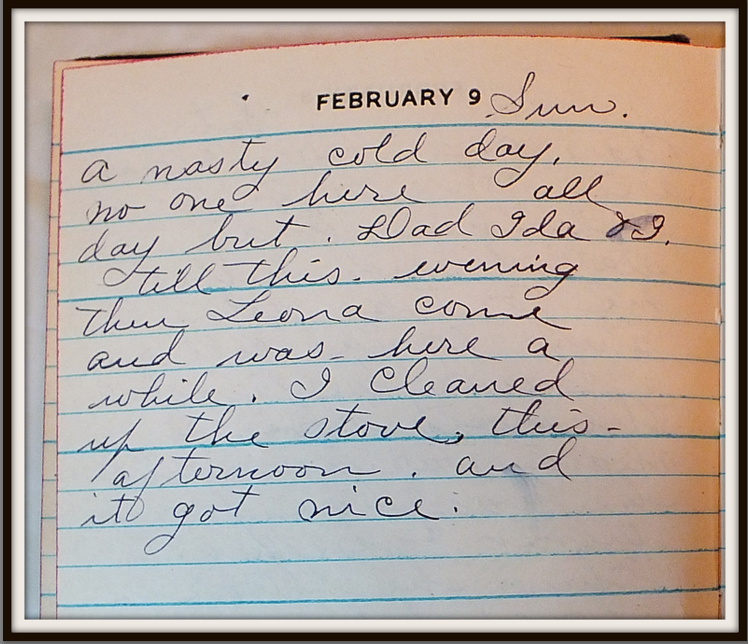 FEBRUARY 9 Sun.
a nasty cold day.
no one here all
day but. Dad Ida & I.
till this. evening
then Leona come
and was here a
while. I cleaned
up the stove, this-
afternoon. and
it got nice.